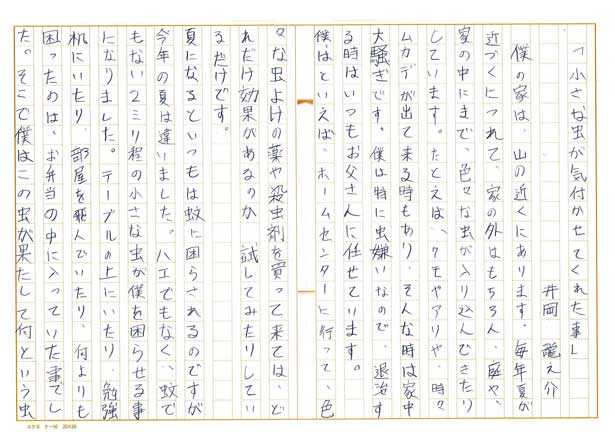 「小さな虫が気付かせてくれた事」
井岡 龍之介
僕の家は、山の近くにあります。毎年夏が
近づくにつれて、家の外はもちろん、庭や、
家の中にまで、色々な虫が入り込んできたり
しています。たとえば、クモやアリや、時々
ムカデが出て来る時もあり、そんな時は家中
大騒ぎです。僕は特に虫嫌いなので、退治す
る時はいつもお父さんに任せています。
僕はといえば、ホームセンターに行って、色
々な虫よけの薬や殺虫剤を買って来ては、ど
れだけ効果があるのか 試してみたりしてい
るだけです。
夏になるといつもは蚊に困らされるのですが
今年の夏は違いました。ハエでもなく、蚊で
もない2ミリ程の小さな虫が僕を困らせる事
になりました。テーブルの上にいたり、勉強
机にいたり、部屋を飛んでいたり、何よりも
困ったのは、お弁当の中に入っていた事でし
た。そこで僕はこの虫が果たして何という虫